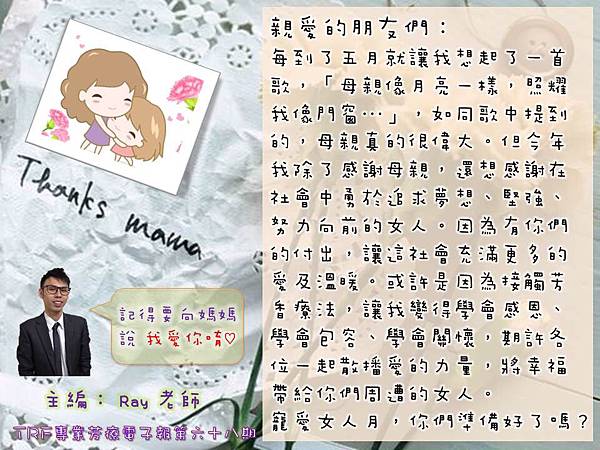 Thanks mama
記得要向媽媽
說 我愛你唷♡
主編： Ray 老師
TRF專業芳療電子報第六十八期
親愛的朋友們：
每到了五月就讓我想起了一首
歌，「母親像月亮一樣，照耀
我像門窗…」，如同歌中提到
的，母親真的很偉大。但今年
我除了感謝母親，還想感謝在
社會中勇於追求夢想、堅強、
努力向前的女人。因為有你們
的付出，讓這社會充滿更多的
愛及溫暖。或許是因為接觸芳
香療法，讓我變得學會感恩、
學會包容、學會關懷，期許各
位一起散播愛的力量，將幸福
帶給你們周遭的女人。
寵愛女人月，你們準備好了嗎？